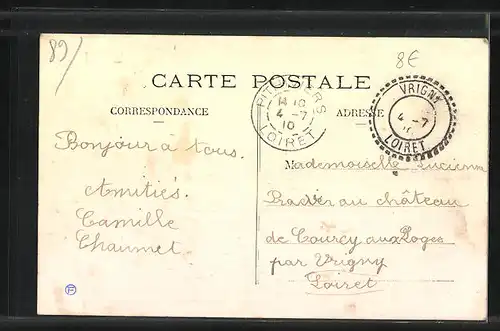 89/
8€
CARTE POSTALE
CORRESPONDANCE
ADRESSE
PITHIVIERS
14 10
4 - 7
10
LOIRET
VRIGNY
4 - 7
10
LOIRET
Bonjour à tous.
Amitiés.
Camille
Chaumet.
Mademoiselle Lucienne
au château
de Courcy aux Loges
par Vrigny
Loiret
F